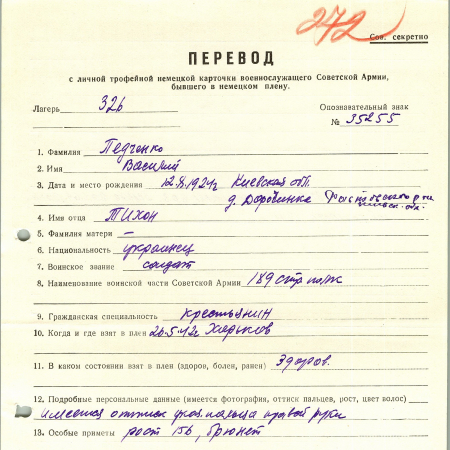 272
Сов. секретно
ПЕРЕВОД
с личной трофейной немецкой карточки военнослужащего Советской Армии,
бывшего в немецком плену.
Лагерь 326 Опознавательный знак
№ 35255
1. Фамилия Педченко
2. Имя Василий
3. Дата и место рождения 12.X.1924г Киевская обл.
д.
4. Имя отца Тихон
5. Фамилия матери –
6. Национальность украинец
7. Воинское звание солдат
8. Наименование воинской части Советской Армии 189 стр полк
9. Гражданская специальность крестьянин
10. Когда и где взят в плен 20.5.42 Харьков
11. В каком состоянии взят в плен (здоров, болен, ранен) Здоров.
12. Подробные персональные данные (имеется фотография, оттиск пальцев, рост, цвет волос)
имеется оттиск указ. пальца правой руки
13. Особые приметы рост 156, брюнет